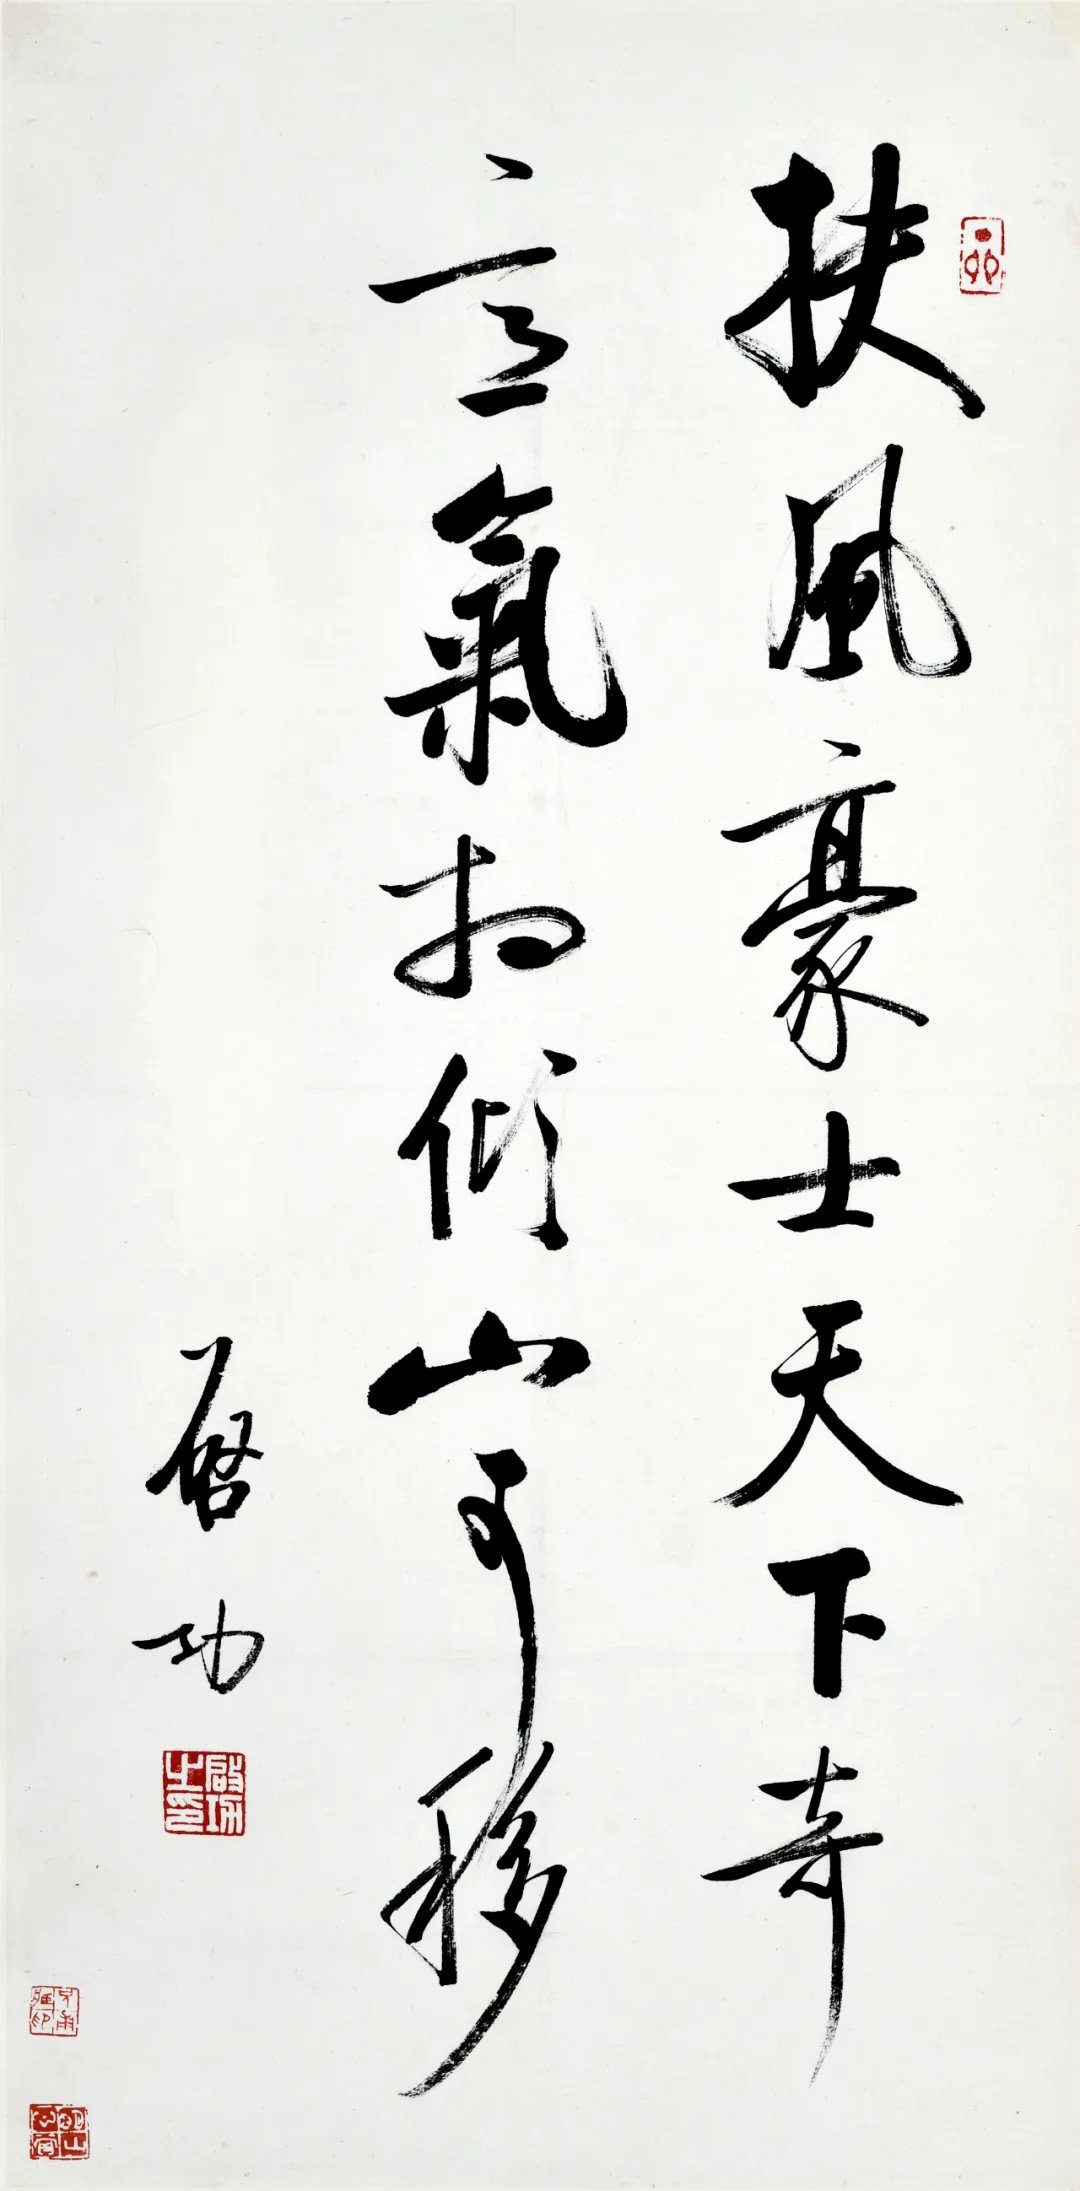 扶風豪士天下奇
意氣相傾山可移
啓功
启功之印